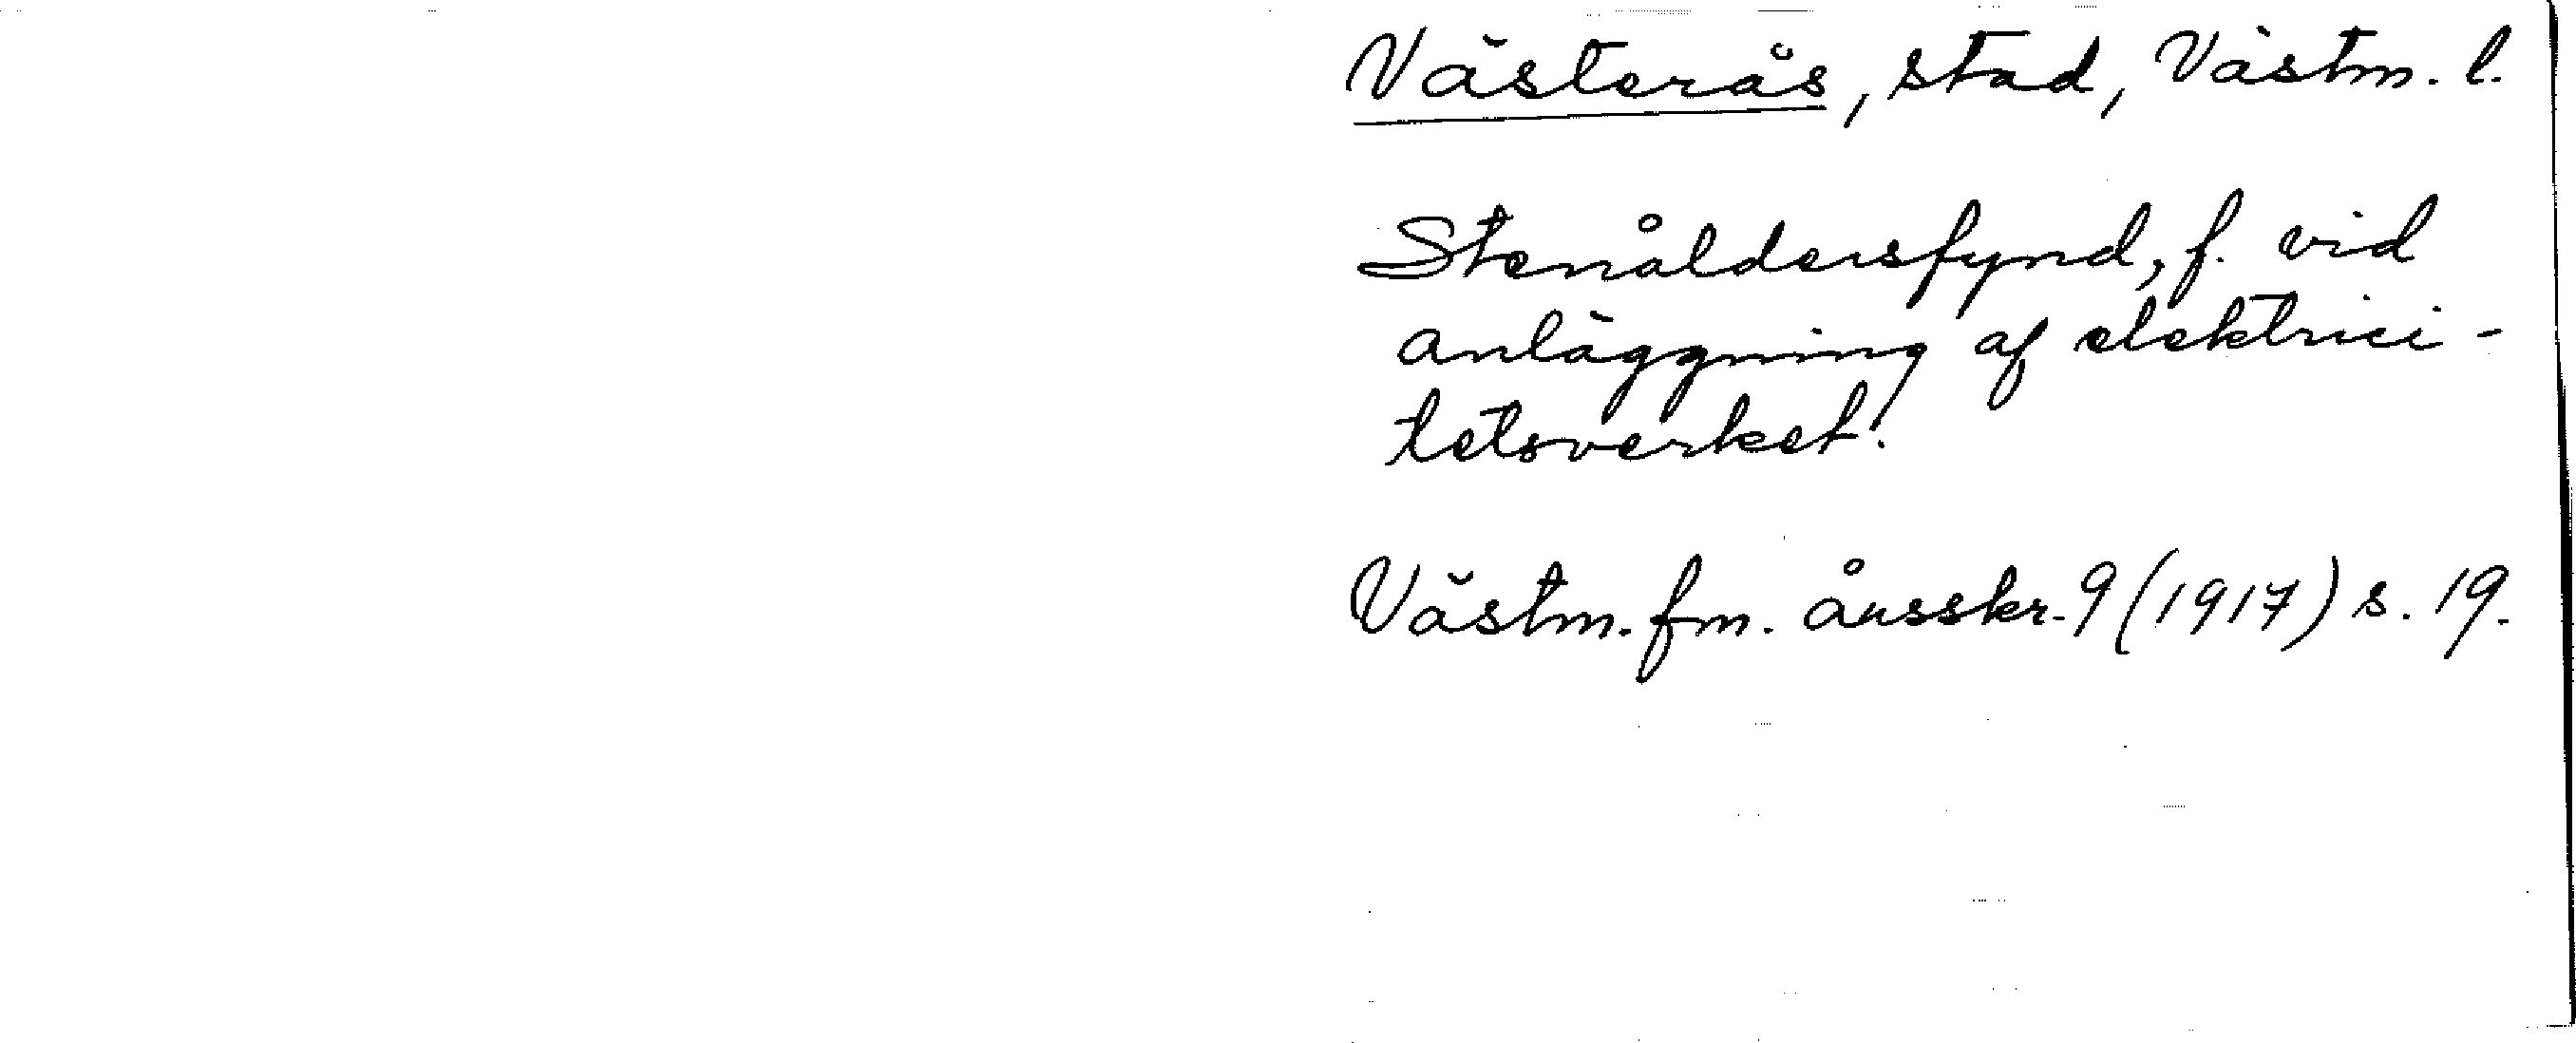 Västerås, stad, Västm. l.
Stenåldersfynd, f. vid
anläggning af elektrici-
tetsverket.
Västm. fm. årsskr. 9 (1917) s. 19.